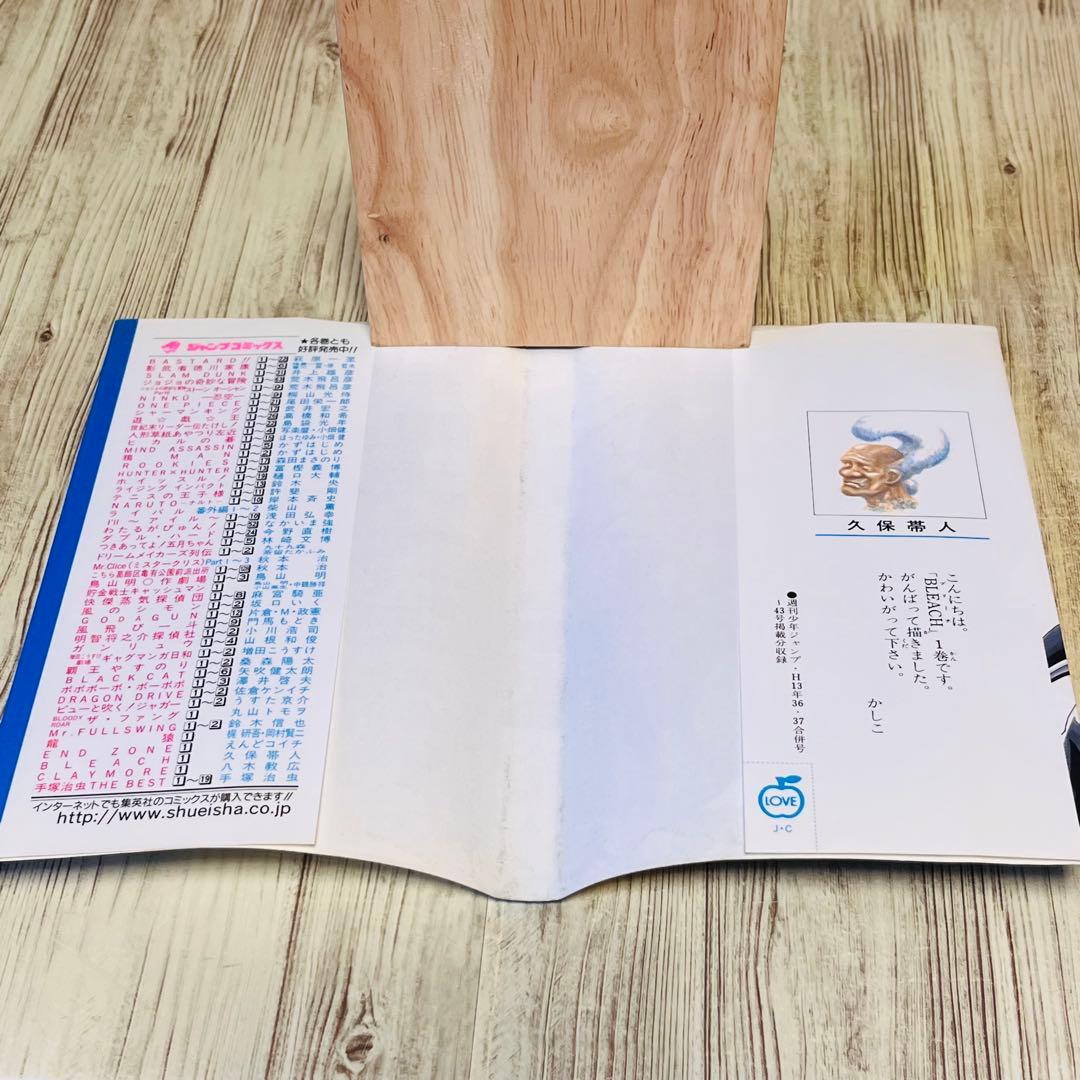 ジャンプコミックス
★各巻とも
好評発売中!!
BASTARD!! 萩原一至
影武者徳川家康
SLAM DUNK 井上雄彦
ジョジョの奇妙な冒険 荒木飛呂彦
ストーンオーシャン 荒木飛呂彦
NINKU―忍空― 桐山光侍
ONE PIECE 尾田栄一郎
シャーマンキング 武井宏之
遊☆戯☆王 高橋和希
世紀末リーダー伝たけし! 島袋光年
人形草紙あやつり左近 写楽麿・小畑健
ヒカルの碁 ほったゆみ・小畑健
MIND ASSASSIN かずはじめ
明稜帝 かずはじめ
ROOKIES 森田まさのり
HUNTER×HUNTER 冨樫義博
ホイッスル! 樋口大輔
ライジングインパクト 鈴木央
テニスの王子様 許斐剛
NARUTO―ナルト― 岸本斉史
ライバル 番外編1～2 柴山薫
I'll～アイル～ 浅田弘幸
わたるがぴゅん! なかいま強
ダブル・ハード 今野直樹
つきあってよ!五月ちゃん 林崎文博
ドリームメイカーズ列伝 1～2
Mr.Clice(ミスタークリス)Part1～3 秋本治
こちら葛飾区亀有公園前派出所 秋本治
鳥山明○作劇場 鳥山明
貯金戦士キャッシュマン
快傑蒸気探偵団 麻宮騎亜
風のシモン 坂口いく
GODAGUN 片倉・M・政憲
風飛び一斗 門馬もとき
明智将之介探偵社 小川浩司
ガンリュウ 山根和俊
ギャグマンガ日和 1～2 増田こうすけ
覇王やすのり 桑森陽太
BLACK CAT 矢吹健太朗
ボボボーボ・ボーボボ 澤井啓夫
DRAGON DRIVE 佐倉ケンイチ
ピューと吹く!ジャガー うすた京介
BLOODY ROAR ザ・ファング 丸山トモヲ
Mr.FULLSWING 1～2 鈴木信也
龍猿 梶研吾・岡村賢二
END ZONE 1 えんどコイチ
BLEACH 1 久保帯人
CLAYMORE 1 八木教広
手塚治虫THE BEST 1～19 手塚治虫
インターネットでも集英社のコミックスが購入できます!!
http://www.shueisha.co.jp
久保帯人
こんにちは。
「BLEACH」1巻です。
がんばって描きました。
かわいがって下さい。
かしこ
●週刊少年ジャンプ・H13年36・37合併号
～43号掲載分収録
LOVE
J・C